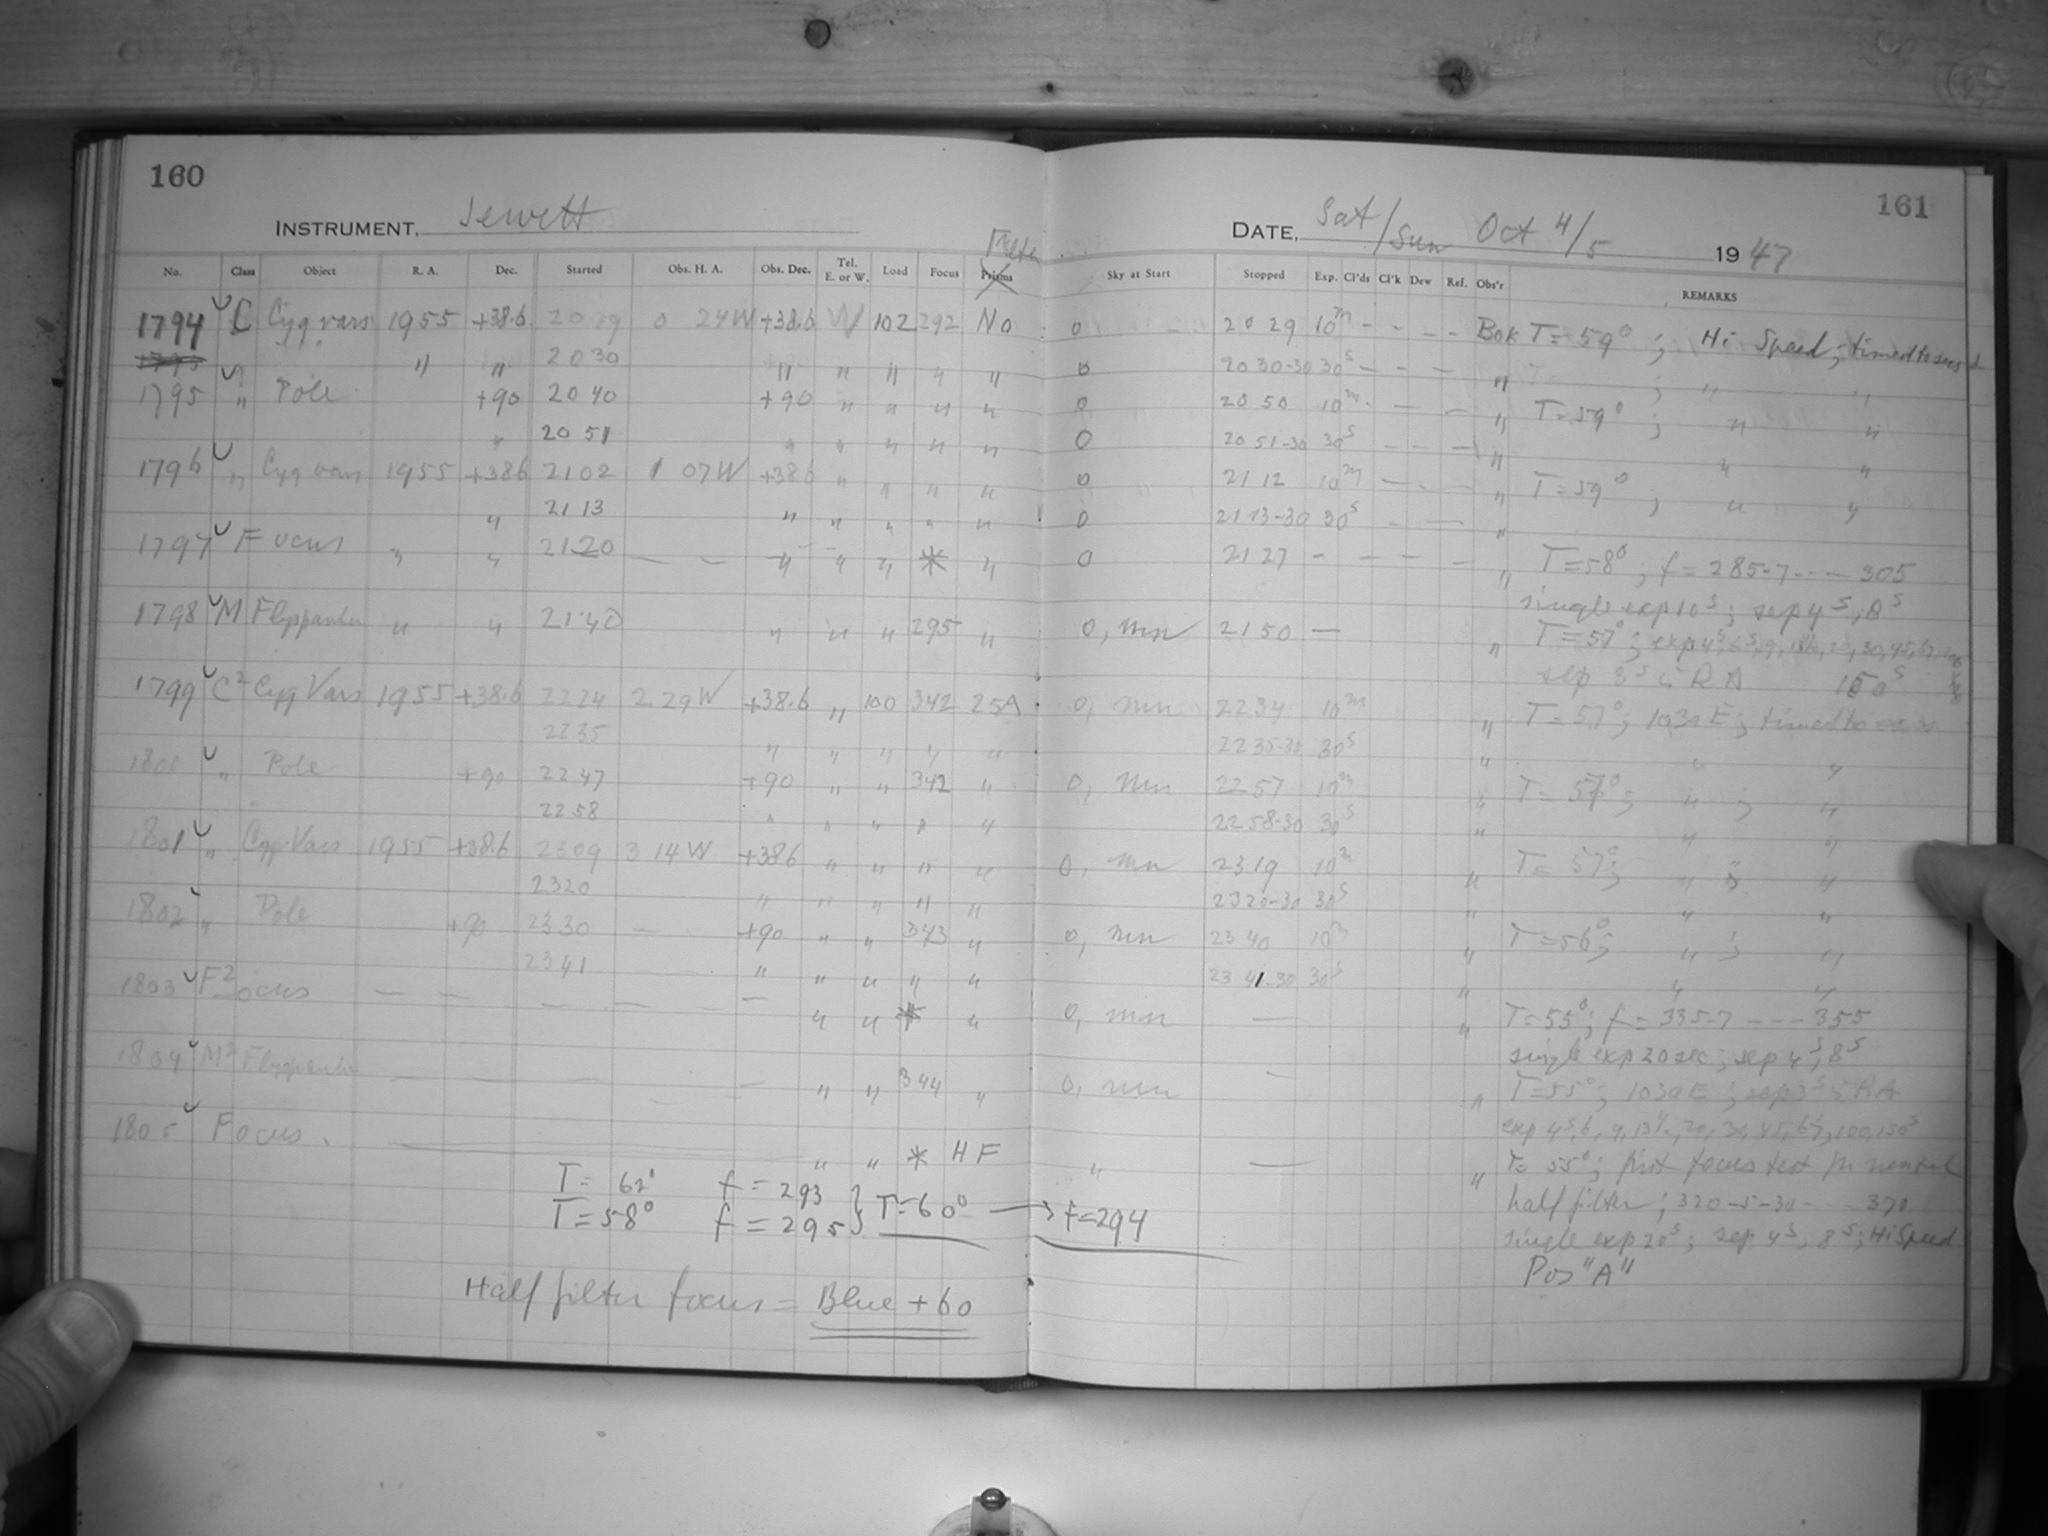 160
INSTRUMENT, Jewett
No. Class Object R. A. Dec. Started Obs. H. A. Obs. Dec. Tel. E. or W. Load Focus Prisms Filter
1794 C Cyg vars 1955 +38.6 0 24W +38.6 W 102 292 No
1795 " " 2030 " " " " "
1795 " Pole +90 2040 +90 " " " "
" 2051 " " " " "
1796 " Cyg vars 1955 +38.6 2102 1 07W +38.6 " " " "
" 2113 " " " " "
1797 Focus " " 2120 — — " " " * "
1798 M Flyspanker " " 2140 " " " 295 "
1799 C2 Cyg Vars 1955 +38.6 2224 2 29W +38.6 " 100 342 25A
2235 " " " " "
1800 " Pole +90 2247 +90 " " 342 "
2258 " " " " "
1801 " Cyg Vars 1955 +38.6 2309 3 14W +38.6 " " " "
2320 " " " " "
1802 " Pole +90 2330 — +90 " " 343 "
2341 " " " " "
1803 F2ocus — — — — — " " * "
1804 M2 Flyspanker — — — — — " " 344 "
1805 Focus. " " * HF
T = 62° f = 293
T = 58° f = 295 } T=60° → f=294
Half filter focus = Blue + 60
161
DATE, Sat/Sun Oct 4/5 1947
Sky at Start Stopped Exp. Cl'ds Cl'k Dew Ref. Obs'r REMARKS
0 2029 10m - - - - Bok T = 59° ; Hi Speed ; timed to second
0 2030-30 30s — - — " ; " "
0 2050 10m - — — " T = 59° ; " "
0 2051-30 30s - — — " " "
0 2112 10m — - - " T = 59° ; " "
0 2113-30 30s - — "
0 2127 - — — — " T = 58° ; f = 285-7 --- 305
single exp 10s ; sep 4s, 8s
0, mn 2150 — " T = 57° ; exp 4s, 6s, 9, 20, 30, 45, 67, 100
sep 3s RA 150s
0, mn 2234 10m " T = 57° ; 103a E ; timed to
2235-30 30s " " "
0, mn 2257 10m " T = 57° ; " ; "
2258-30 30s " " "
0, mn 2319 10m " T = 57° ; " ; "
2320-30 30s " " "
0, mn 2340 10m " T = 56° ; " ; "
2341-30 30s " " "
0, mn — " T = 55° ; f = 335-7 --- 355
single exp 20 sec ; sep 4s, 8s
0, mn — " T = 55° ; 103a E ; sep 3s RA
exp 4s, 6, 9, 13½, 20, 30, 45, 67, 100, 150s
" — " T = 55° ; first focus test for neutral
half filter ; 320-5-30 --- 370
single exp 20s ; sep 4s, 8s ; Hi Speed
Pos "A"